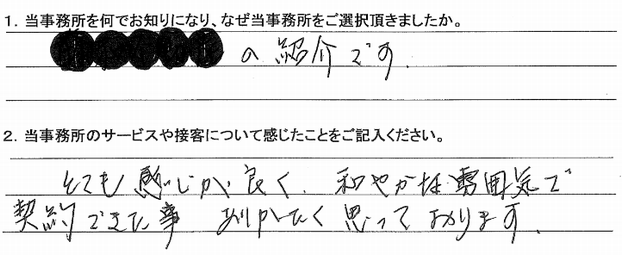 1. 当事務所を何でお知りになり、なぜ当事務所をご選択頂きましたか。
の紹介です.
2. 当事務所のサービスや接客について感じたことをご記入ください。
とても感じが良く、和やかな雰囲気で
契約できた事 ありがたく思っております.